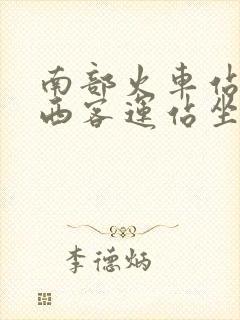 南部火車佔
西客運佔坐
李德炳